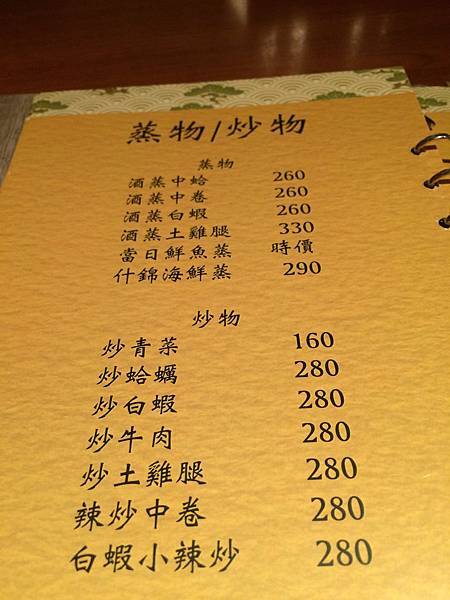 蒸物/炒物
蒸物
酒蒸中蛤 260
酒蒸中卷 260
酒蒸白蝦 260
酒蒸土雞腿 330
當日鮮魚蒸 時價
什錦海鮮蒸 290
炒物
炒青菜 160
炒蛤蠣 280
炒白蝦 280
炒牛肉 280
炒土雞腿 280
辣炒中卷 280
白蝦小辣炒 280